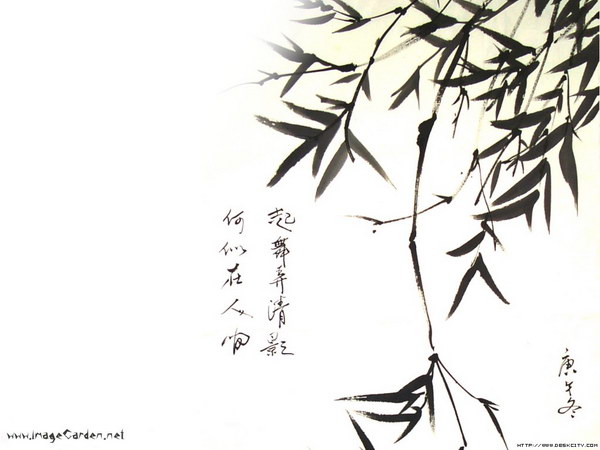 起舞弄清影
何似在人间
庚午冬
www.imageGarden.net
HTTP://WWW.DESKCITY.COM